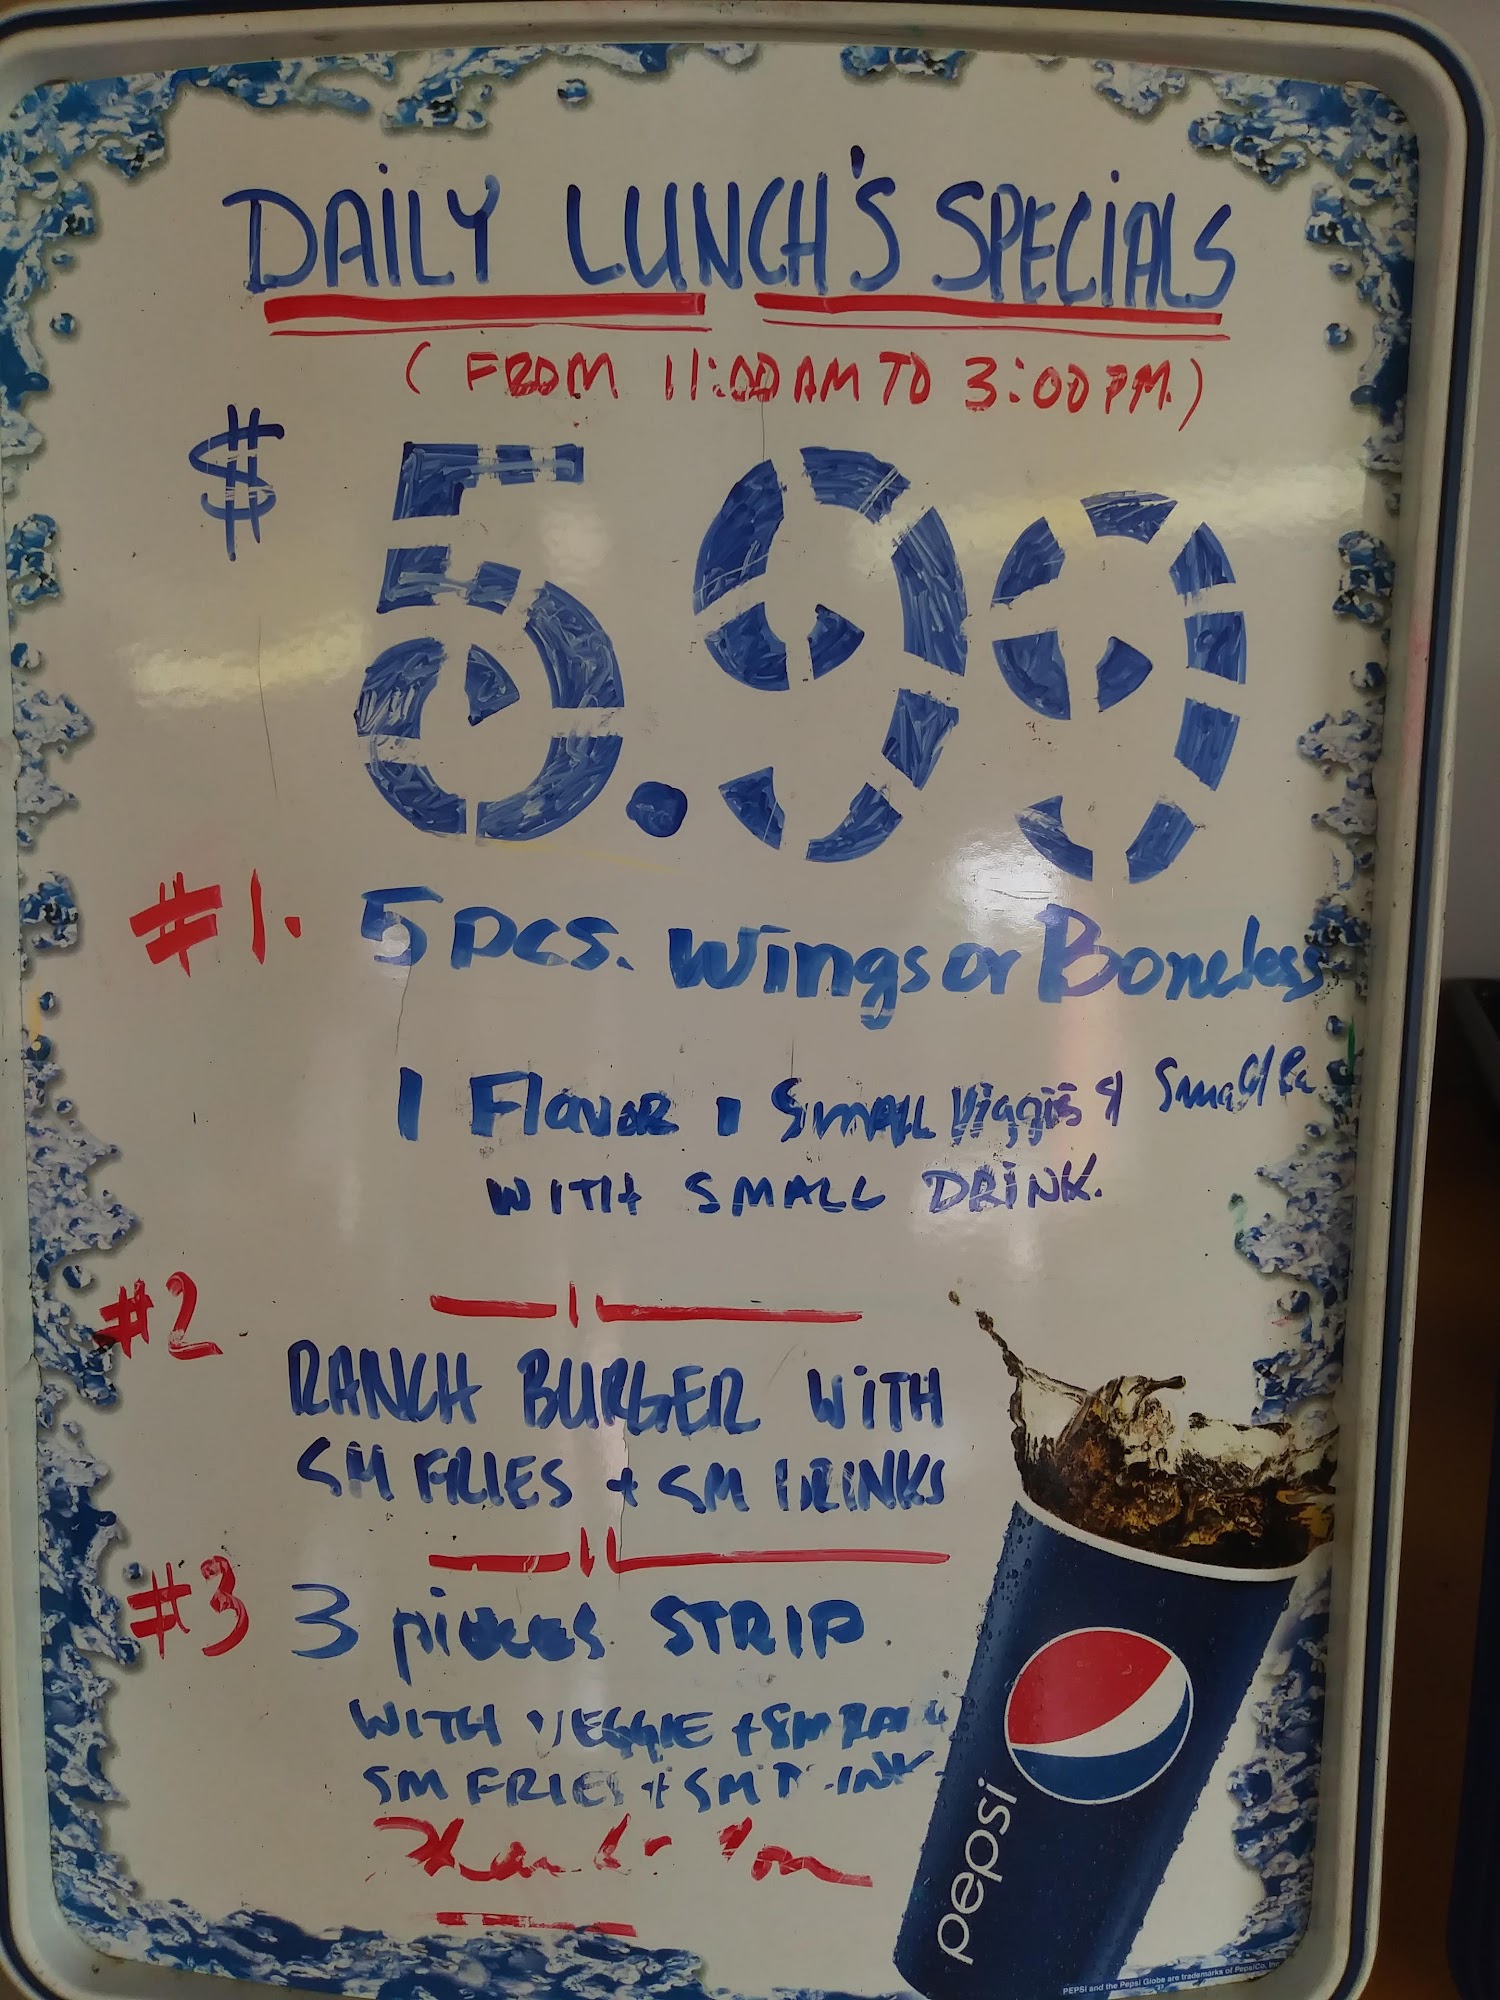 DAILY LUNCH'S SPECIALS
(FROM 11:00AM TO 3:00PM.)
$5.99
#1. 5 pcs. Wings or Boneless
1 Flavor, Small Viggis & Small Ra
WITH SMALL DRINK.
#2
RANCH BURGER WITH
SM FRIES + SM DRINKS
#3 3 pieces STRIP
WITH VEGGIE + SM RANC
SM FRIES + SM DRINK
Thank You
pepsi
PEPSI and the Pepsi Globe are trademarks of PepsiCo, Inc.